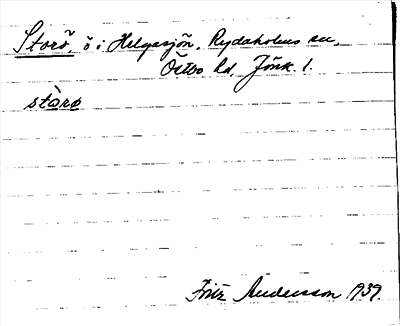 Storö, ö i Helgasjön, Rydaholms sn,
Östbo hd, Jönk. l.
stàrø
Fritz Andersson 1939.